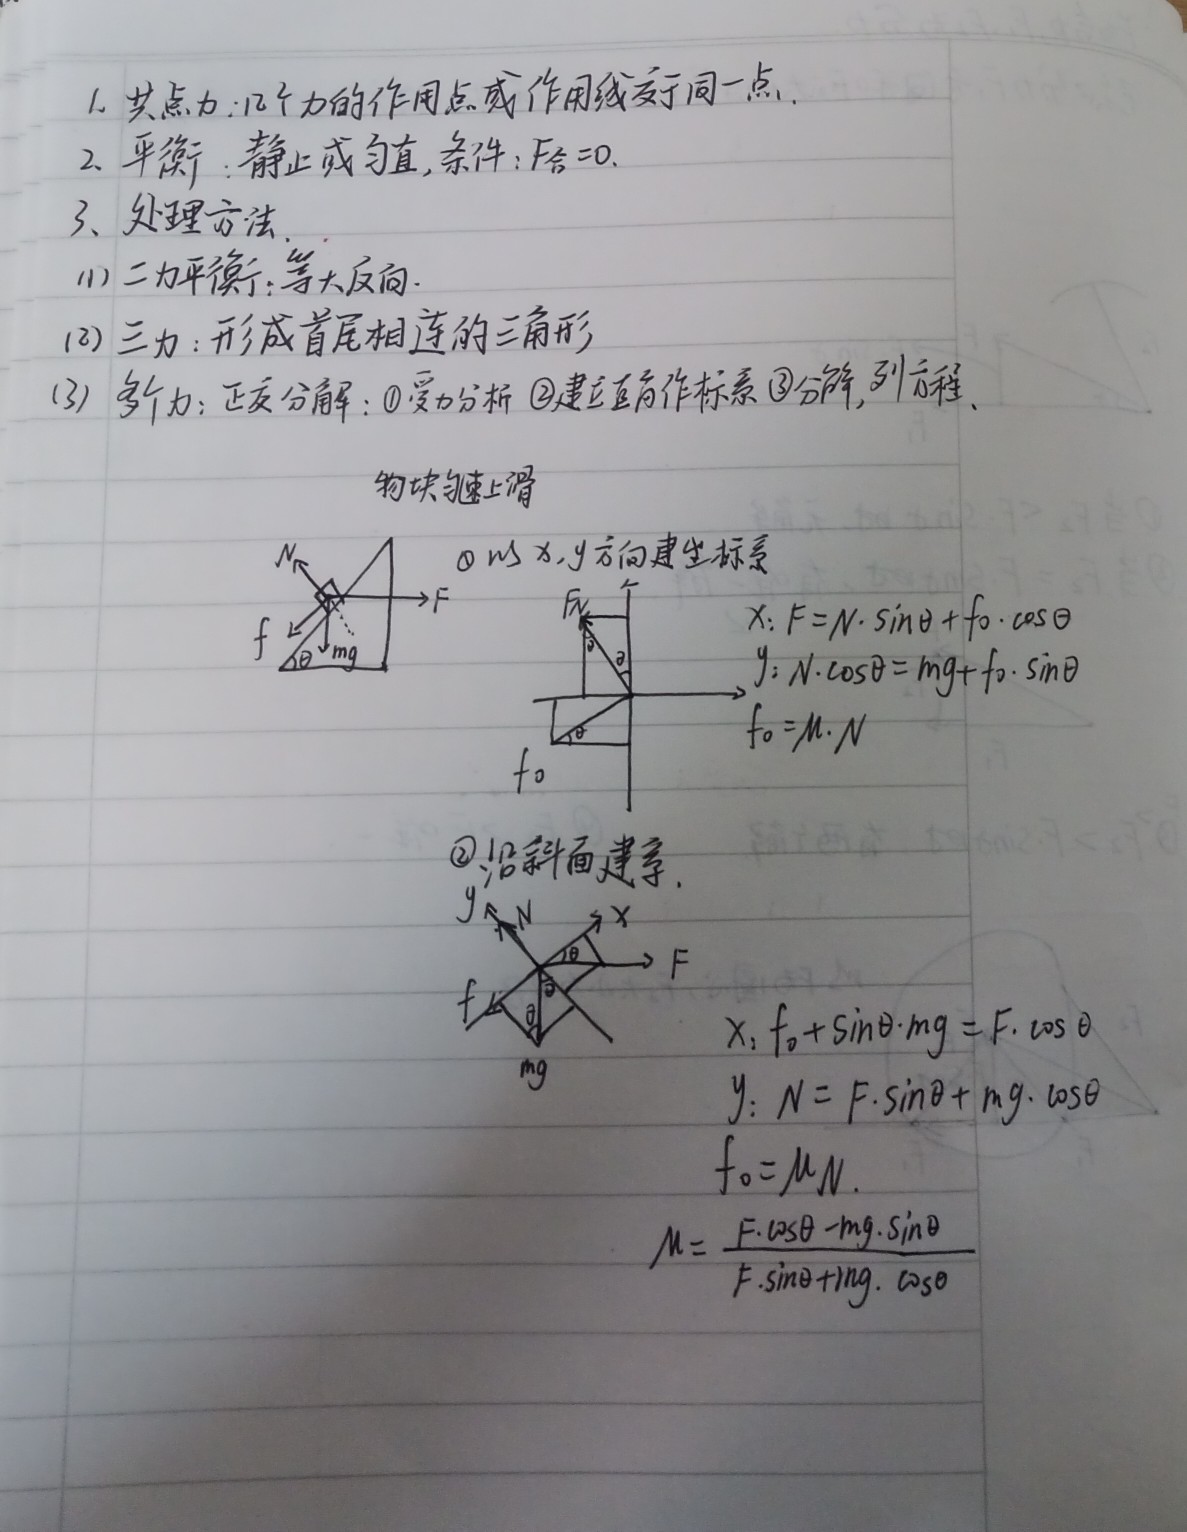 1、共点力：几个力的作用点或作用线交于同一点.
2、平衡：静止或匀直，条件：F合=0.
3、处理方法.
(1) 二力平衡：等大反向.
(2) 三力：形成首尾相连的三角形
(3) 多个力：正交分解：①受力分析 ②建立直角作标系 ③分解，列方程.
物块匀速上滑
N
F
f
θ
mg
①以x,y方向建坐标系
FN
θ
θ
θ
f₀
x: F=N·sinθ+f₀·cosθ
y: N·cosθ=mg+f₀·sinθ
f₀=μ·N
②沿斜面建系.
y
N
x
θ
F
f
θ
θ
mg
x: f₀+sinθ·mg=F·cosθ
y: N=F·sinθ+mg·cosθ
f₀=μN.
μ= F·cosθ-mg·sinθ / F·sinθ+mg·cosθ